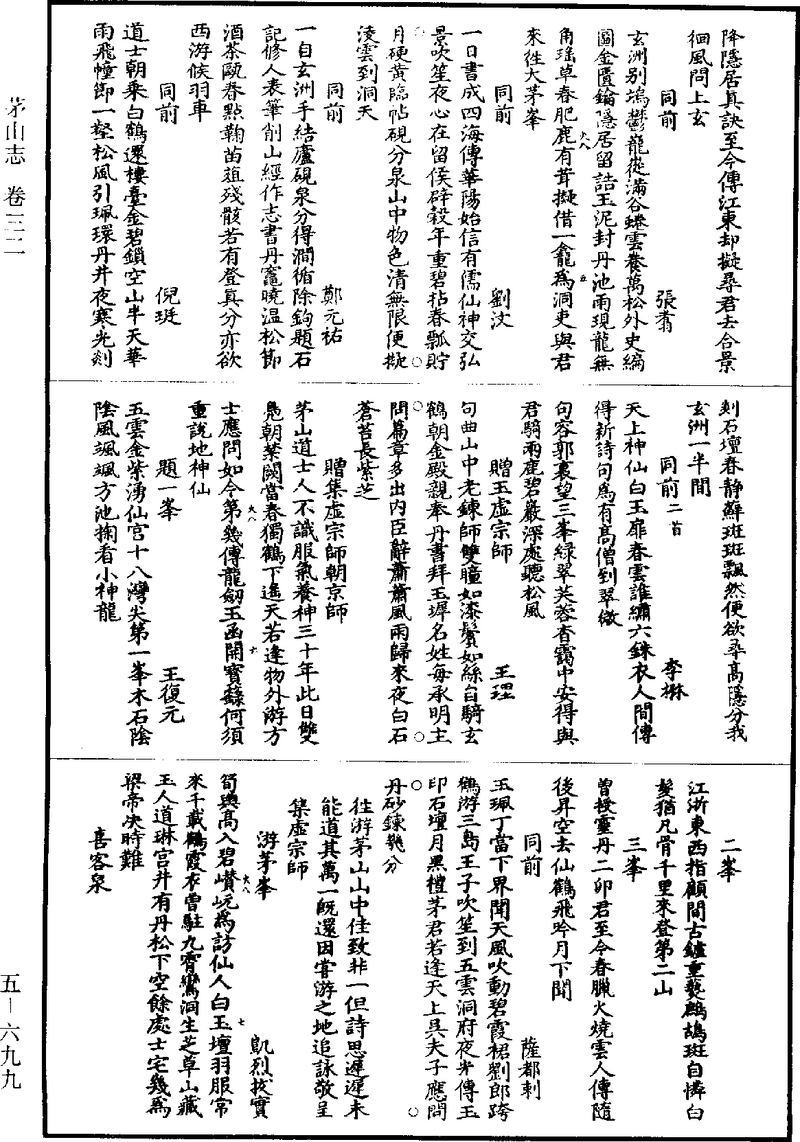 茅山志　卷三二
五—六九九
降隱居真訣至今傳江東却擬尋君去合景
徊風問上玄
同前　張翥
玄洲別塢鬱龍嵸滿谷蜷雲養萬松外史編
圖金匱鑰隱居留誥玉泥封丹池雨現龍無
角瑶草春肥鹿有茸擬借一龕爲洞吏與君
來往大茅峯
同前　劉汶
一日書成四海傳華陽始信有儒仙神交弘
景吹笙夜心在留侯辟穀年重碧拈春瓢貯
月硬黄臨帖硯分泉山中物色清無限便擬
淩雲到洞天
同前　鄭元祐
一自玄洲手結廬硯泉分得澗循除鉤題石
記修人表筆削山經作志書丹竈曉温松節
酒茶甌春點鞠苗葅殘骸若有登真分亦欲
西游候羽車
同前　倪珽
道士朝乘白鶴還樓臺金碧鎖空山半天華
雨飛幢節一壑松風引珮環丹井夜寒光剡
剡石壇春静蘚斑斑飄然便欲尋高隱分我
玄洲一半間
同前二首　李
天上神仙白玉扉春雲誰繡六銖衣人間傳
得新詩句爲有高僧到翠微
句容郭裏望三峯綠翠芙蓉杳靄中安得與
君騎兩鹿碧巖深處聽松風
贈玉虚宗師　王理
句曲山中老鍊師雙瞳如漆鬢如絲自騎玄
鶴朝金殿親奉丹書拜玉墀名姓每承明主
問篇章多出内臣辭蕭蕭風雨歸來夜白石
蒼苔長紫芝
贈集虚宗師朝京師
茅山道士人不識服氣養神三十年此日雙
鳧朝紫闕當春獨鶴下遥天若逢物外游方
士應問如今第幾傳龍劒玉函開寳籙何須
重說地神仙
題一峯　王復元
五雲金紫湧仙宫十八灣尖第一峯木石陰
陰風颯颯方池掬看小神龍
二峯
江浙東西指顧間古鑪重爇鷓鴣斑自憐白
髮猶凡骨千里來登第二山
三峯
曾授靈丹二卯君至今春臘火燒雲人傳隨
後昇空去仙鶴飛吟月下聞
同前　薩都剌
玉珮丁當下界聞天風吹動碧霞裙劉郎跨
鶴游三島王子吹笙到五雲洞府夜光傳玉
印石壇月黑禮茅君若逢天上吳夫子應問
丹砂鍊幾分
往游茅山山中佳致非一但詩思遲遲未
能道其萬一既還因嘗游之地追詠敬呈
集虚宗師
游茅峯　凱烈拔實
筍輿高入碧巑岏爲訪仙人白玉壇羽服常
來千載鶴霞衣曾駐九霄鸞洞生芝草山藏
玉人道琳宫井有丹松下空餘處士宅幾爲
梁帝决時難
喜客泉